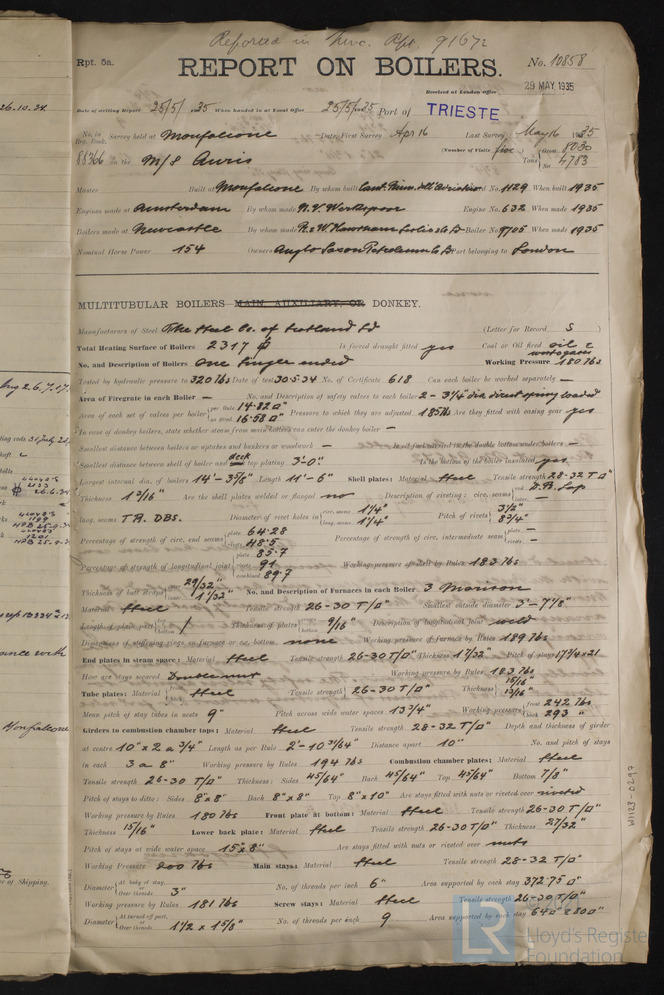 Reported in Nwc. Rpt. 91672
Rpt. 5a.
No. 10858
REPORT ON BOILERS.
29 MAY 1935
Received at London Office
Date of writing Report 25/5/1935 When handed in at Local Office 25/5/1935 Port of TRIESTE
No. in Reg. Book. Survey held at Monfalcone Date, First Survey Apr 16 Last Survey May 16 1935
88366 on the M/S Auris (Number of Visits five) Tons Gross 8030 Net 4783
Master Built at Monfalcone By whom built Cant. Riun. dell'Adriatico Yard No. 1129 When built 1935
Engines made at Amsterdam By whom made N.V. Werkspoor Engine No. 632 When made 1935
Boilers made at Newcastle By whom made R & W Hawthorn Leslie & Co Ld Boiler No. 9705 When made 1935
Nominal Horse Power 154 Owners Anglo Saxon Petroleum Co Ld Port belonging to London
MULTITUBULAR BOILERS MAIN, AUXILIARY, OR DONKEY.
Manufacturers of Steel The Steel Co. of Scotland Ld (Letter for Record S)
Total Heating Surface of Boilers 2317 Is forced draught fitted yes Coal or Oil fired oil &
No. and Description of Boilers One Single ended Working Pressure 180 lbs
Tested by hydraulic pressure to 320 lbs Date of test 30.5.34 No. of Certificate 618 Can each boiler be worked separately –
Area of Firegrate in each Boiler – No. and Description of safety valves to each boiler 2 - 3¼" dia. direct spring loaded
Area of each set of valves per boiler per Rule 14.82 □" as fitted 16.58 □" Pressure to which they are adjusted 185 lbs Are they fitted with easing gear yes
In case of donkey boilers, state whether steam from main boilers can enter the donkey boiler –
Smallest distance between boilers or uptakes and bunkers or woodwork – Is oil fuel carried in the double bottom under boilers –
Smallest distance between shell of boiler and deck plating 3'-0" Is the bottom of the boiler insulated yes
Largest internal dia. of boilers 14'-3⅝" Length 11'-6" Shell plates: Material Steel Tensile strength 28-32 T/□"
Thickness 1 3/16" Are the shell plates welded or flanged no Description of riveting: circ. seams end D.R. Lap inter. –
long. seams T.R. DBS. Diameter of rivet holes in circ. seams 1¼" long. seams 1¼" Pitch of rivets 3½" 8¾"
Percentage of strength of circ. end seams plate 64.28 rivets 48.5 Percentage of strength of circ. intermediate seam plate – rivets –
Percentage of strength of longitudinal joint plate 85.7 rivets 91 combined 89.7 Working pressure of shell by Rules 183 lbs
Thickness of butt straps outer 29/32" inner 1 1/32" No. and Description of Furnaces in each Boiler 3 Morison
Material Steel Tensile strength 26-30 T/□" Smallest outside diameter 3'-7⅞"
Length of plain part Thickness of plates 9/16" Description of longitudinal joint weld
Dimensions of stiffening rings on furnace or c.c. bottom none Working pressure of furnace by Rules 189 lbs
End plates in steam space: Material Steel Tensile strength 26-30 T/□" Thickness 1 7/32" Pitch of stays 17¾ x 21
How are stays secured Double nut Working pressure by Rules 183 lbs
Tube plates: Material front back Steel Tensile strength 26-30 T/□" Thickness 15/16" 13/16"
Mean pitch of stay tubes in nests 9" Pitch across wide water spaces 13¾" Working pressure front 242 lbs back 293 "
Girders to combustion chamber tops: Material Steel Tensile strength 28-32 T/□" Depth and thickness of girder
at centre 10" x 2 @ ¾" Length as per Rule 2'-10 3/64" Distance apart 10" No. and pitch of stays
in each 3 @ 8" Working pressure by Rules 194 lbs Combustion chamber plates: Material Steel
Tensile strength 26-30 T/□" Thickness: Sides 45/64" Back 45/64" Top 45/64" Bottom 7/8"
Pitch of stays to ditto: Sides 8"x8" Back 8"x8" Top 8"x10" Are stays fitted with nuts or riveted over riveted
Working pressure by Rules 180 lbs Front plate at bottom: Material Steel Tensile strength 26-30 T/□"
Thickness 15/16" Lower back plate: Material Steel Tensile strength 26-30 T/□" Thickness 27/32"
Pitch of stays at wide water space 15"x8" Are stays fitted with nuts or riveted over nuts
Working Pressure 200 lbs Main stays: Material Steel Tensile strength 28-32 T/□"
Diameter At body of stay, or Over threads 3" No. of threads per inch 6" Area supported by each stay 372.75 □"
Working pressure by Rules 181 lbs Screw stays: Material Steel Tensile strength 26-30 T/□"
Diameter At turned off part, or Over threads 1½ x 1⅝" No. of threads per inch 9 Area supported by each stay 64□" & 80□"
W1128-0297
LR
Lloyd's Register
Foundation
26.10.34
Monfalcone
e of Shipping.